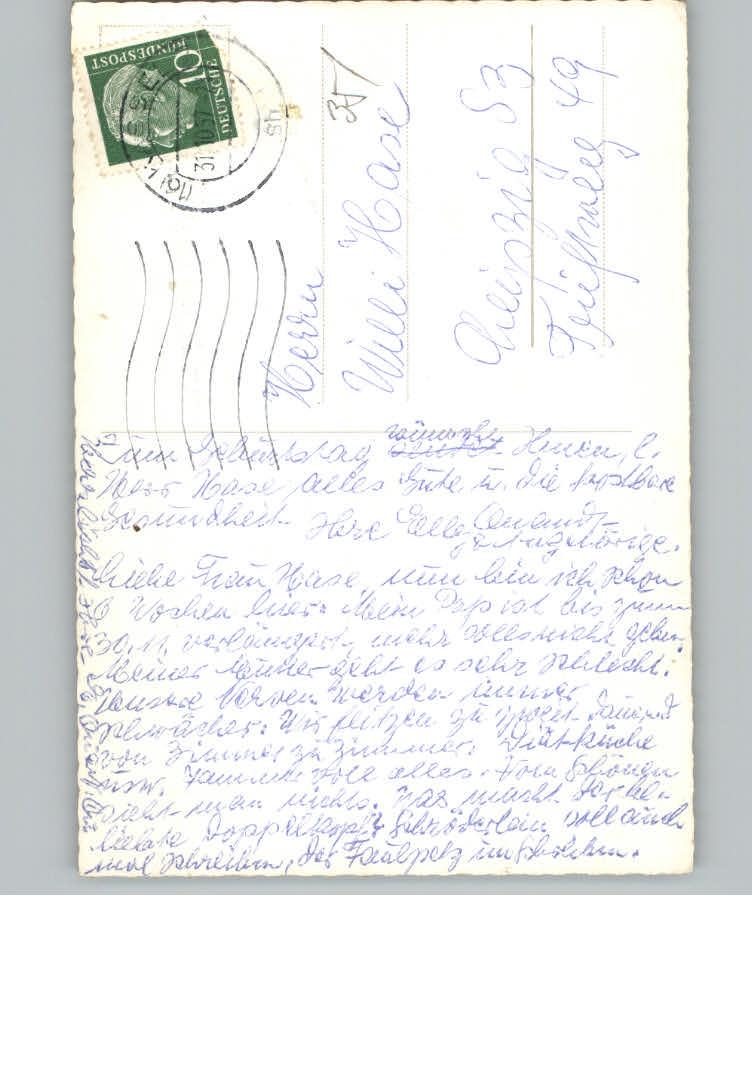 DEUTSCHE
BUNDESPOST
10
31.10.57
sh
35/
Herrn
Willi Hase
Leipzig S3
Triftweg 49
Zum Geburtstag wünscht Ihnen, l.
Herr Hase, alles Gute u. die kostbare
Gesundheit. Ihre Elly
u. Angehörige.
Liebe Frau Hase, nun bin ich schon
6 Wochen hier. Mein Pap ist bis zum
30.11. verlängert, mehr soll's nicht geben.
Meiner geht es sehr schlecht.
Unsere Nerven werden immer
schwächer. Wir flitzen zu zweit dauernd
von Zimmer zu Zimmer. Diätküche
usw. alles. Vom Schönen
sieht man nichts. Was macht der be-
liebte Doppelkopf? Schröderlein soll auch
mal schreiben, der Faulpelz im Schreiben.
Herzlichst Ihre